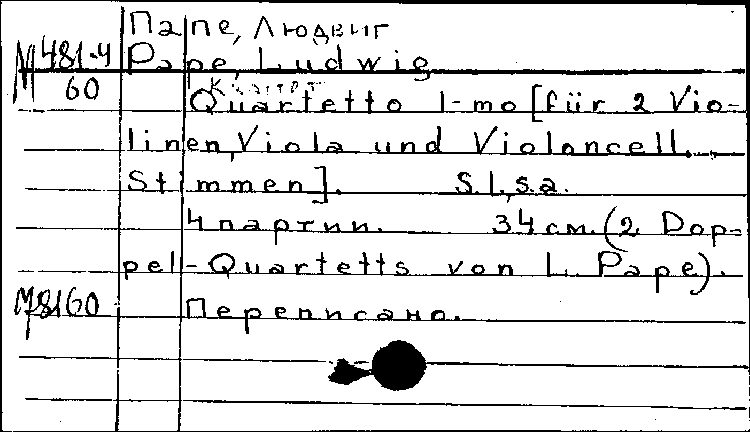 Папе, Людвиг
М 481-4 Pape, Ludwig
60 Квартет
Quartetto I-mo [für 2 Vio-
linen, Viola und Violoncell.
Stimmen]. S.l., s.a.
4 партии. 34 см. (2 Dop-
pel-Quartetts von L. Pape).
Переписано.